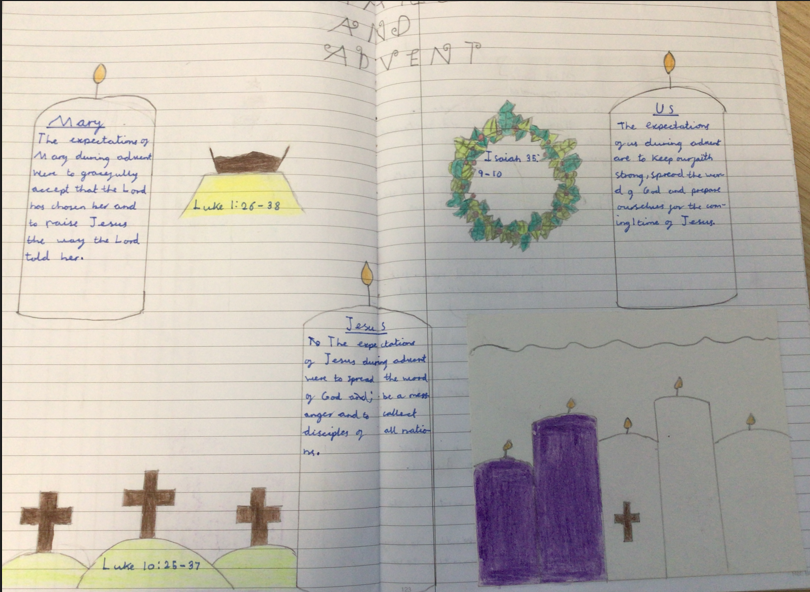 AND
ADVENT
Mary
The expectations of
Mary during advent
were to gracefully
accept that the Lord
has chosen her and
to raise Jesus
the way the Lord
told her.
Luke 1:26-38
Isaiah 35:
9-10
Us
The expectations
of us during advent
are to keep our faith
strong, spread the wor
d of God and prepare
ourselves for the com-
ing/time of Jesus.
Jesus
The expectations
of Jesus during advent
were to spread the word
of God and; be a mess
anger and to collect
disciples of all natio-
ns.
Luke 10:25-37